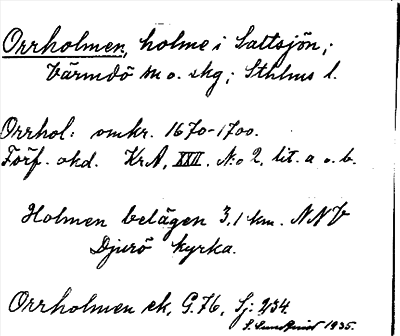 Orrholmen, holme i Saltsjön,;
Värmdö m o. skg; Sthlms l.
Orrhol: omkr. 1670-1700.
Förf. okd. Kr.A, XXII. No 2, lit. a o. b.
Holmen belägen 3,1 km. NNV
Djurö kyrka.
Orrholmen ek, G.76, Sj: 234.
S. Lundkvist 1935.